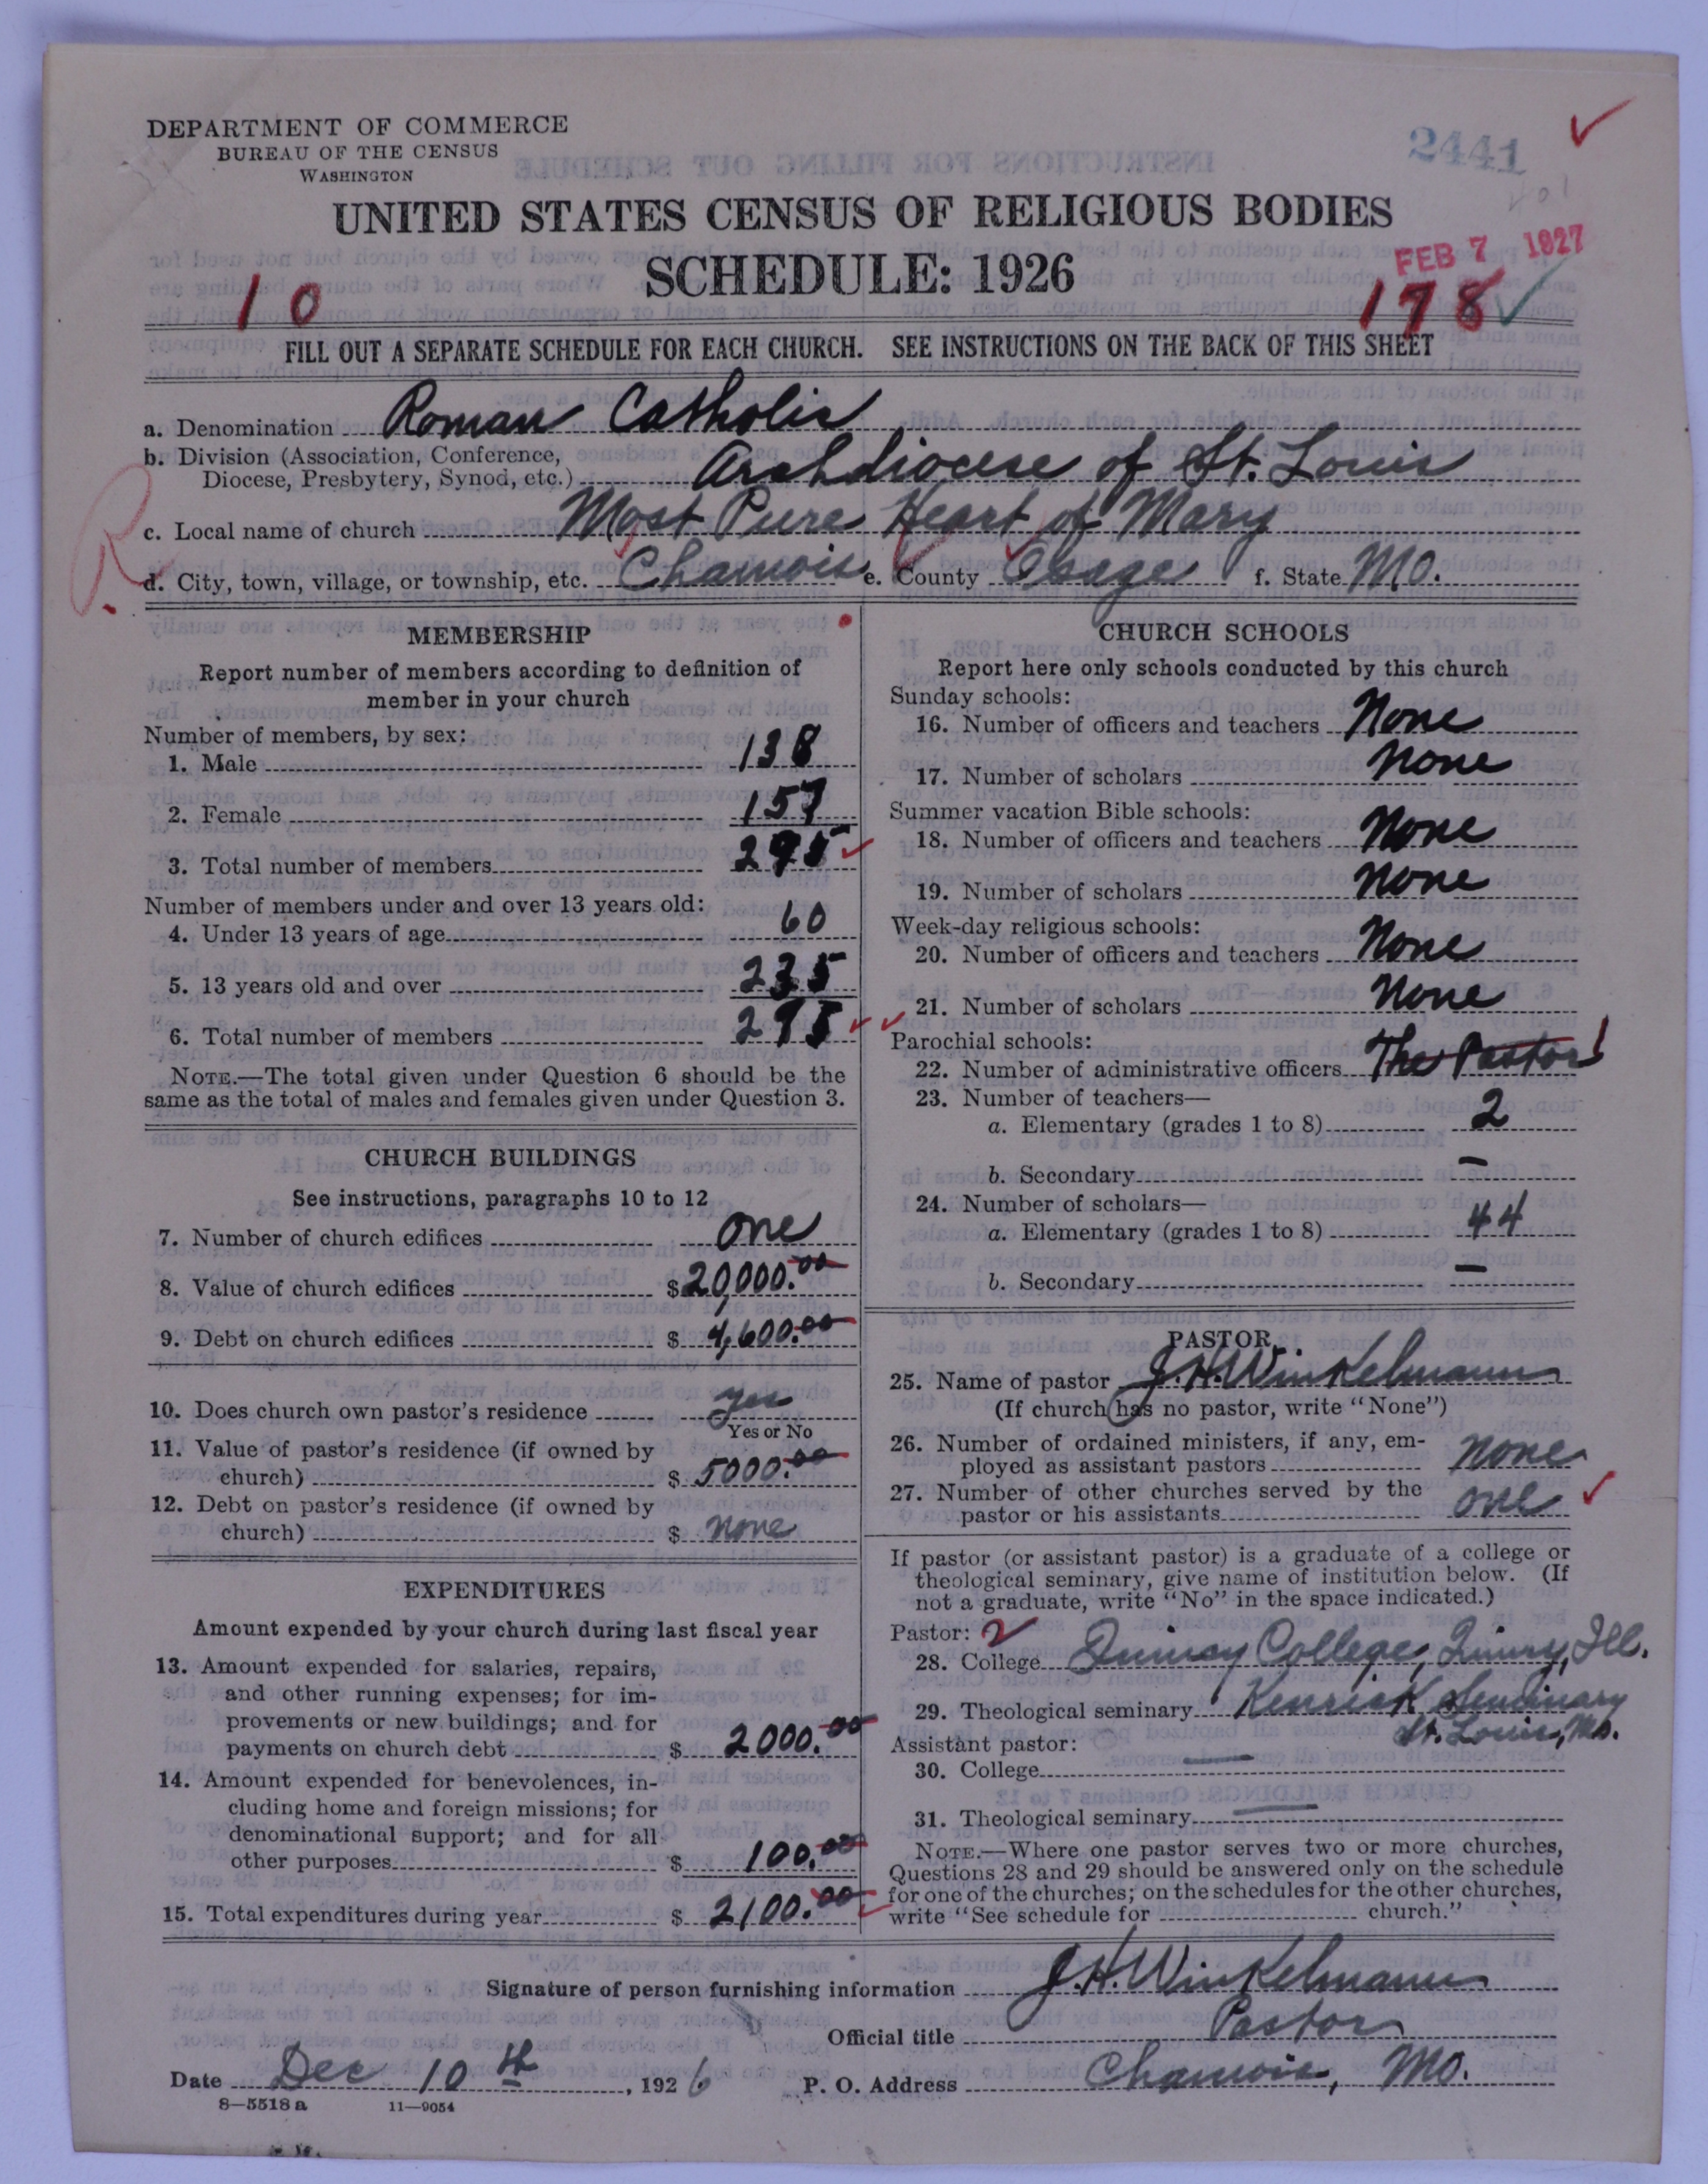 DEPARTMENT OF COMMERCE
BUREAU OF THE CENSUS
WASHINGTON
2441
UNITED STATES CENSUS OF RELIGIOUS BODIES
SCHEDULE: 1926
FEB 7 1927
10
178
FILL OUT A SEPARATE SCHEDULE FOR EACH CHURCH. SEE INSTRUCTIONS ON THE BACK OF THIS SHEET
a. Denomination Roman Catholic
b. Division (Association, Conference,
Diocese, Presbytery, Synod, etc.) Archdiocese of St. Louis
c. Local name of church Most Pure Heart of Mary
d. City, town, village, or township, etc. Chamois e. County Osage f. State Mo.
R.
MEMBERSHIP
Report number of members according to definition of
member in your church
Number of members, by sex:
1. Male 138
2. Female 157
3. Total number of members 295
Number of members under and over 13 years old:
4. Under 13 years of age 60
5. 13 years old and over 235
6. Total number of members 295
NOTE.—The total given under Question 6 should be the
same as the total of males and females given under Question 3.
CHURCH BUILDINGS
See instructions, paragraphs 10 to 12
7. Number of church edifices one
8. Value of church edifices $ 20,000.00
9. Debt on church edifices $ 4,600.00
10. Does church own pastor's residence yes
Yes or No
11. Value of pastor's residence (if owned by
church) $ 5000.00
12. Debt on pastor's residence (if owned by
church) $ none
EXPENDITURES
Amount expended by your church during last fiscal year
13. Amount expended for salaries, repairs,
and other running expenses; for im-
provements or new buildings; and for
payments on church debt $ 2000.00
14. Amount expended for benevolences, in-
cluding home and foreign missions; for
denominational support; and for all
other purposes $ 100.00
15. Total expenditures during year $ 2100.00
CHURCH SCHOOLS
Report here only schools conducted by this church
Sunday schools:
16. Number of officers and teachers None
17. Number of scholars None
Summer vacation Bible schools:
18. Number of officers and teachers None
19. Number of scholars None
Week-day religious schools:
20. Number of officers and teachers None
21. Number of scholars None
Parochial schools:
22. Number of administrative officers The Pastor 1
23. Number of teachers—
a. Elementary (grades 1 to 8) 2
b. Secondary —
24. Number of scholars—
a. Elementary (grades 1 to 8) 44
b. Secondary —
PASTOR
25. Name of pastor J.H. Winkelmann
(If church has no pastor, write "None")
26. Number of ordained ministers, if any, em-
ployed as assistant pastors none
27. Number of other churches served by the
pastor or his assistants one
If pastor (or assistant pastor) is a graduate of a college or
theological seminary, give name of institution below. (If
not a graduate, write "No" in the space indicated.)
Pastor: 2
28. College Quincy College, Quincy, Ill.
29. Theological seminary Kenrick Seminary
St. Louis, Mo.
Assistant pastor:
30. College —
31. Theological seminary —
NOTE.—Where one pastor serves two or more churches,
Questions 28 and 29 should be answered only on the schedule
for one of the churches; on the schedules for the other churches,
write "See schedule for church."
Signature of person furnishing information J.H. Winkelmann
Official title Pastor
Date Dec 10th, 1926 P. O. Address Chamois, Mo.
8—5518 a 11—9054